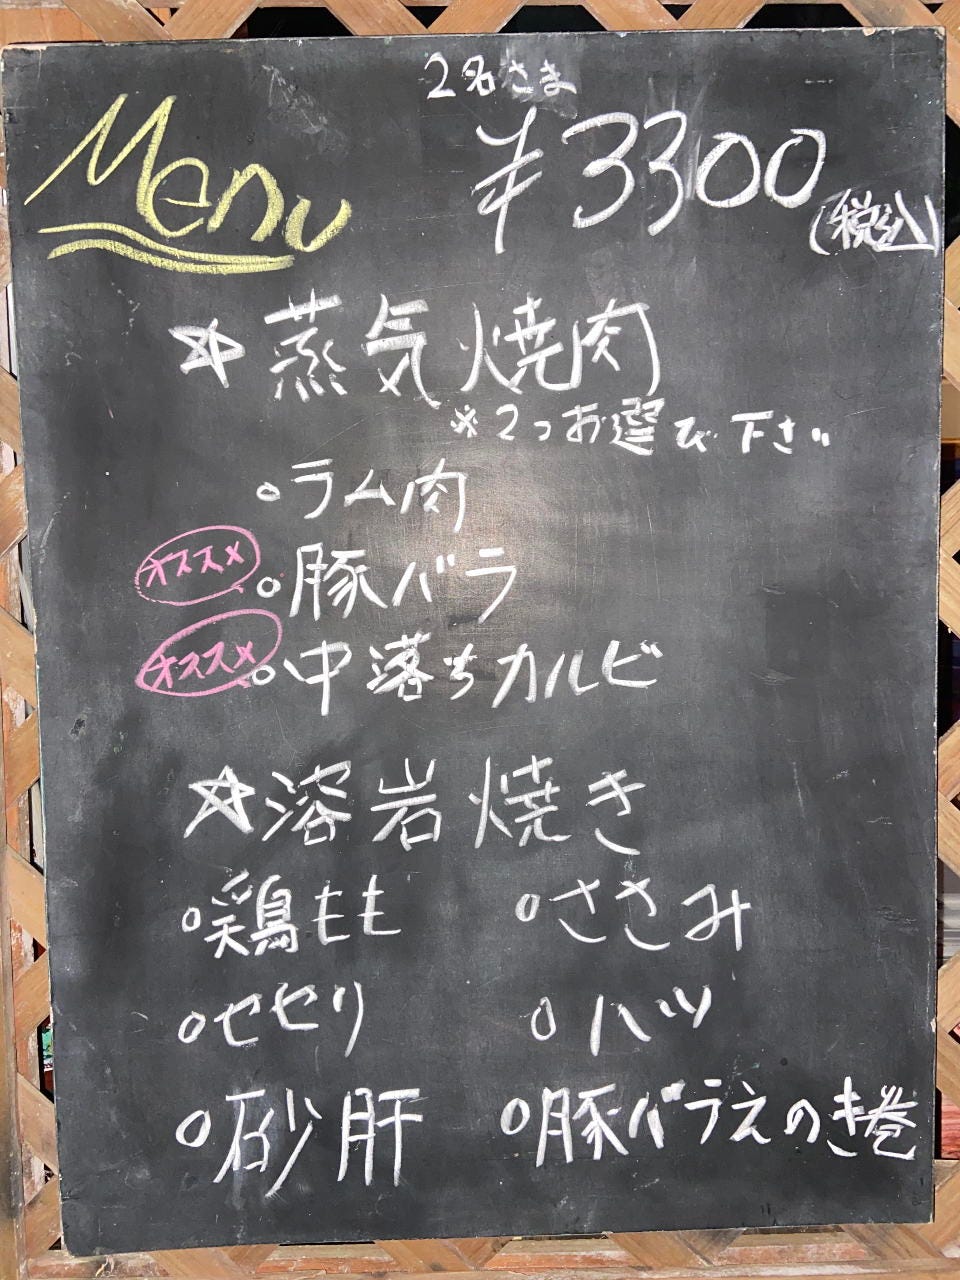 2名さま
Menu ¥3300 (税込)
☆蒸気焼肉
※2つお選び下さい
○ラム肉
オススメ ○豚バラ
オススメ ○中落ちカルビ
☆溶岩焼き
○鶏もも ○ささみ
○セセリ ○ハツ
○砂肝 ○豚バラえのき巻